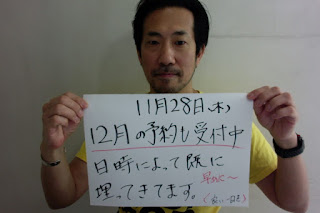 11月28日(木)
12月の予約も受付中
日時によって既に
早めに〜
埋ってきてます。